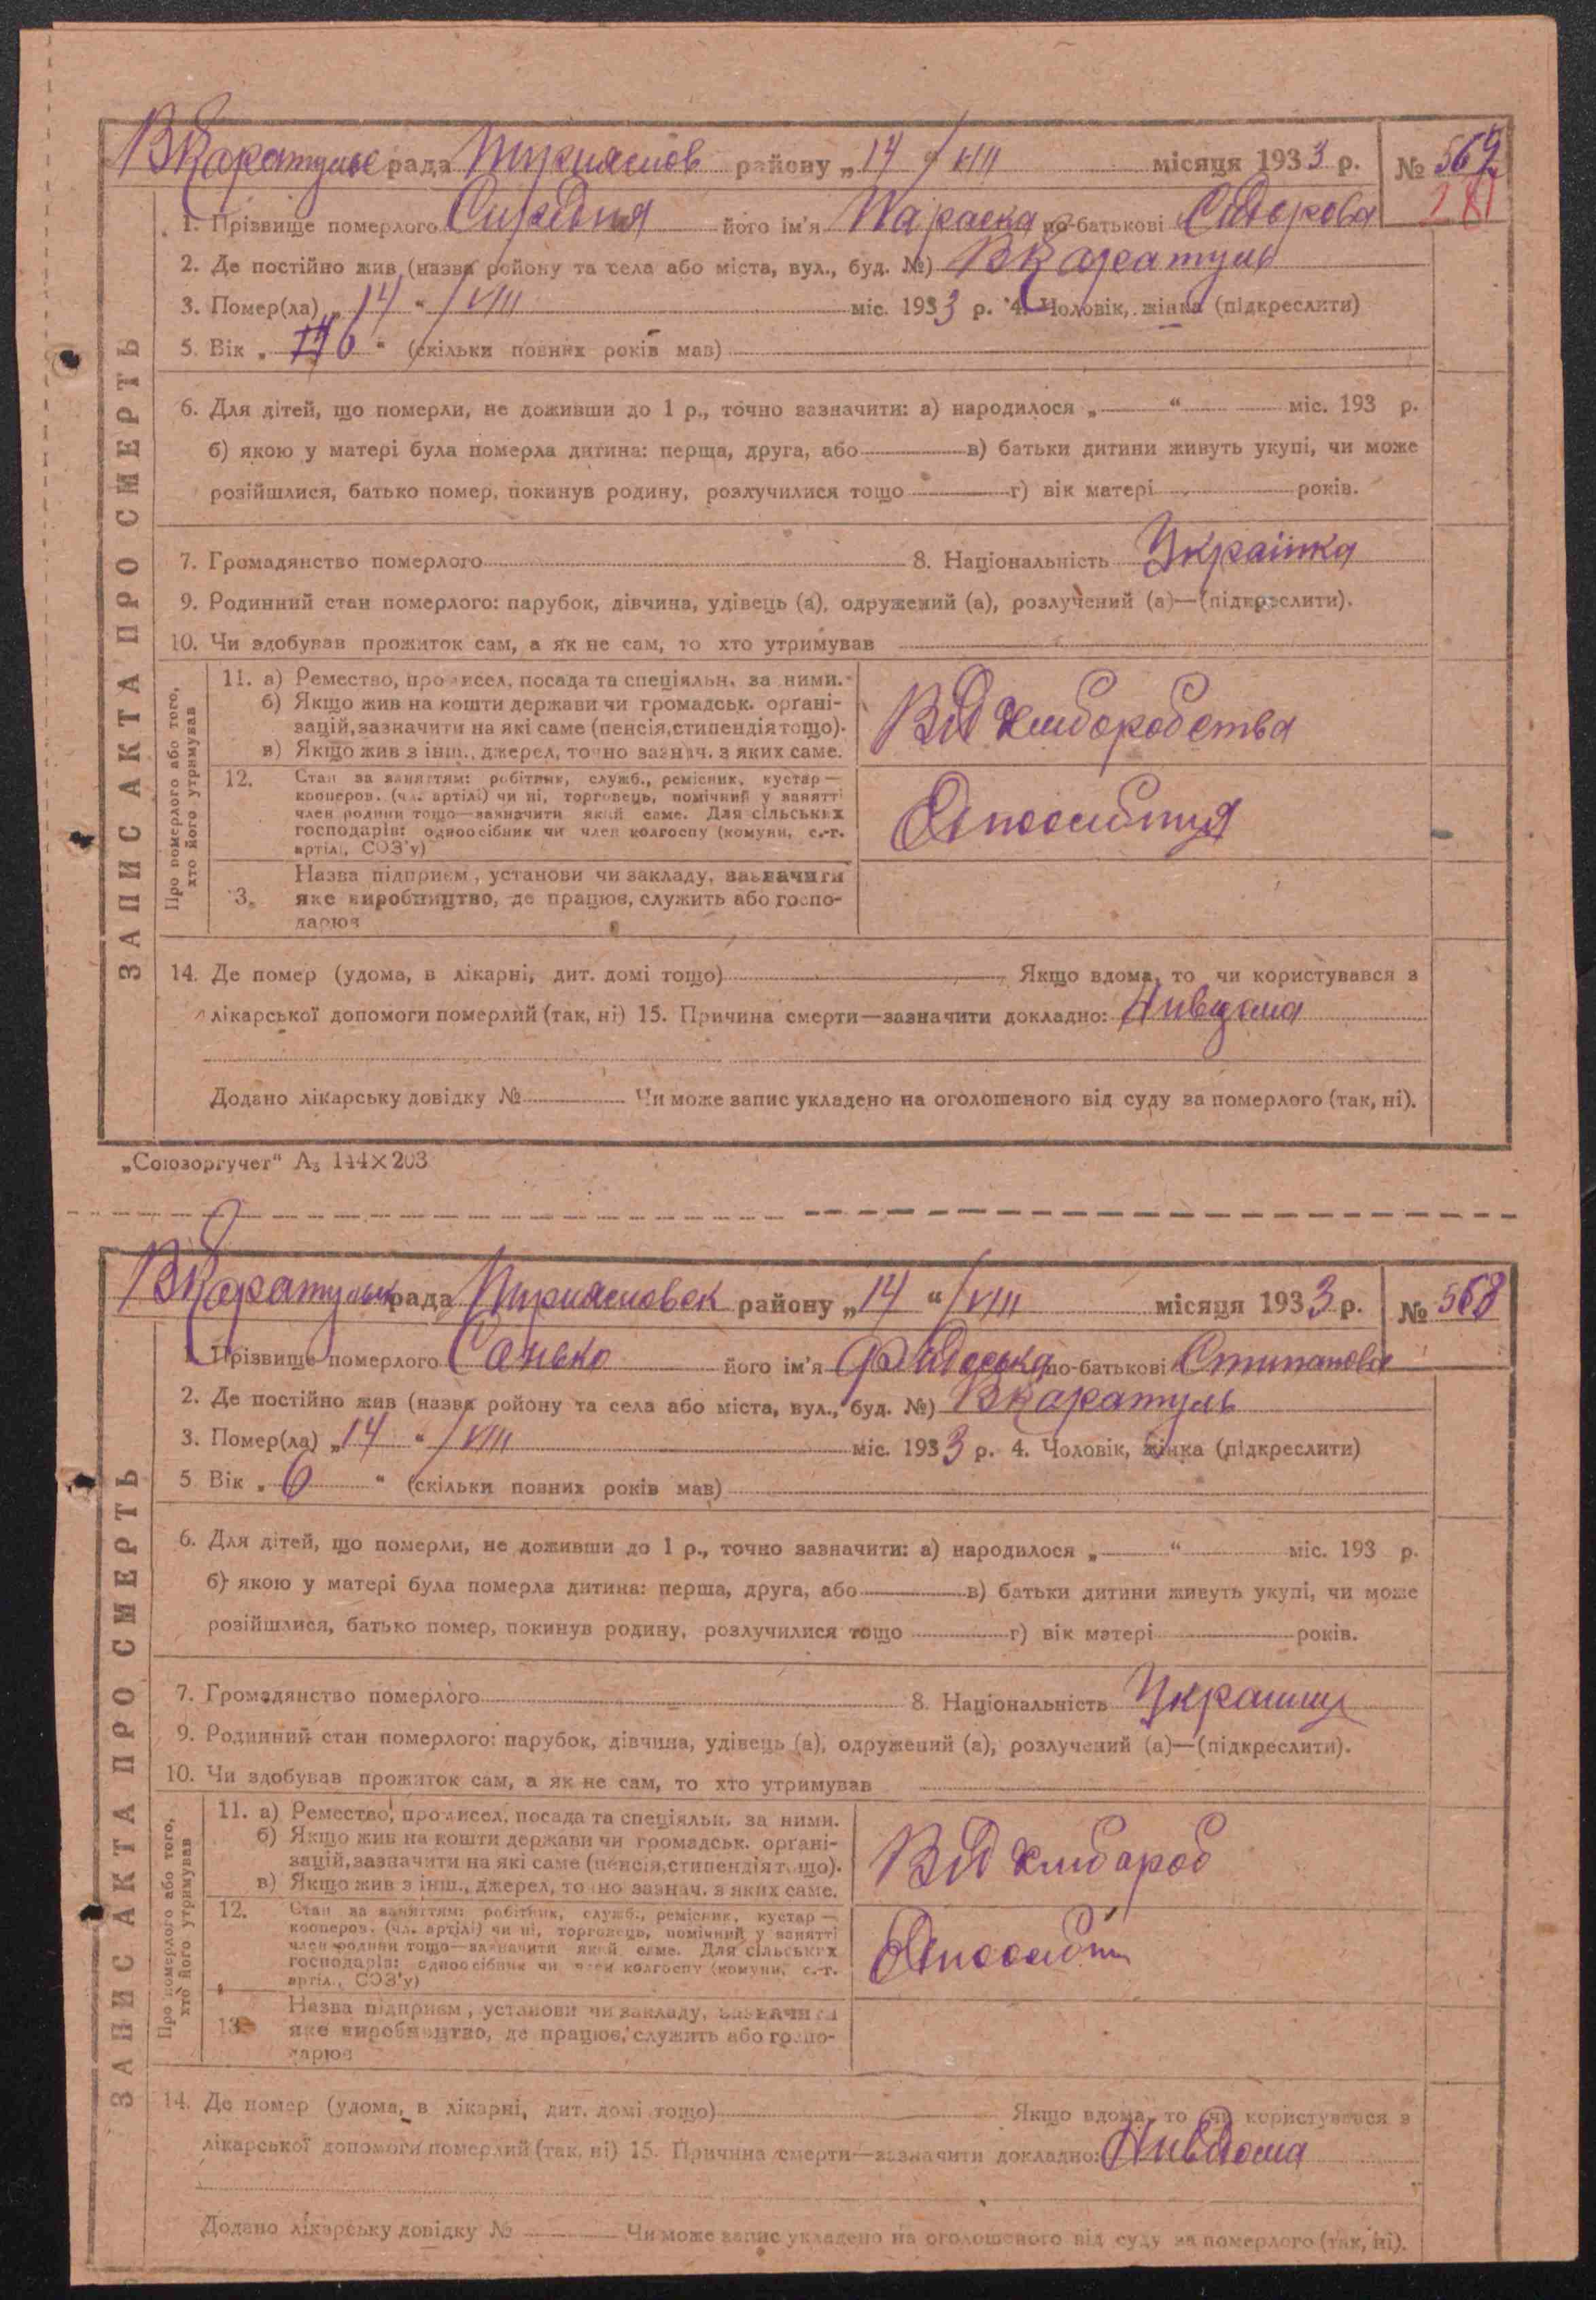 ВКаратульс рада Переяслов району „14 “ / VIII місяця 1933 р. № 569
281
1. Прізвище померлого Середня його ім'я Параска по-батькові Сидорова
2. Де постійно жив (назва ройону та села або міста, вул., буд. №) ВКаратуль
3. Помер(ла) „ 14 “ / VIII міс. 1933 р. 4. Чоловік, жінка (підкреслити)
5. Вік „ “ (скільки повних років мав)
6. Для дітей, що померли, не доживши до 1 р., точно зазначити: а) народилося „ “ міс. 193 р.
б) якою у матері була померла дитина: перша, друга, або в) батьки дитини живуть укупі, чи може
розійшлися, батько помер, покинув родину, розлучилися тощо г) вік матері років.
7. Громадянство померлого 8. Національність Українка
9. Родинний стан померлого: парубок, дівчина, удівець (а), одружений (а), розлучений (а)—(підкреслити).
10. Чи здобував прожиток сам, а як не сам, то хто утримував
ЗАПИС АКТА ПРО СМЕРТЬ
Про померлого або того,
хто його утримував
11. а) Ремество, промисел, посада та спеціяльн. за ними.
б) Якщо жив на кошти держави чи громадськ. орґані-
зацій, зазначити на які саме (пенсія, стипендія тощо).
в) Якщо жив з інш., джерел, точно зазнач. з яких саме.
Від хлиборобства
12. Стан за заняттям: робітник, служб., ремісник, кустар —
кооперов. (чл. артілі) чи ні, торговець, помічний у занятті
член родини тощо—зазначити який саме. Для сільських
господарів: одноосібник чи член колгоспу (комуни, с.-г.
артілі, СОЗ'у)
Дноосибниця
Назва підприєм, установи чи закладу, зазначити
3. яке виробництво, де працює, служить або госпо-
дарює
14. Де помер (удома, в лікарні, дит. домі тощо) Якщо вдома, то чи користувався з
лікарської допомоги померлий (так, ні) 15. Причина смерти—зазначити докладно: Нивідома
Додано лікарську довідку № Чи може запис укладено на оголошеного від суду за померлого (так, ні).
„Союзоргучет“ А₃ 144×203
ВКаратульск рада Переясловск району „14 “ / VIII місяця 1933 р. № 568
1. Прізвище померлого Санько його ім'я Федоська по-батькові Степанова
2. Де постійно жив (назва ройону та села або міста, вул., буд. №) ВКаратуль
3. Помер(ла) „ 14 “ / VIII міс. 1933 р. 4. Чоловік, жінка (підкреслити)
5 Вік „ 6 “ (скільки повних років мав)
6. Для дітей, що померли, не доживши до 1 р., точно зазначити: а) народилося „ “ міс. 193 р.
б) якою у матері була померла дитина: перша, друга, або в) батьки дитини живуть укупі, чи може
розійшлися, батько помер, покинув родину, розлучилися тощо г) вік матері років.
7. Громадянство померлого 8. Національність
9. Родинний стан померлого: парубок, дівчина, удівець (а), одружений (а), розлучений (а)—(підкреслити).
10. Чи здобував прожиток сам, а як не сам, то хто утримував
ЗАПИС АКТА ПРО СМЕРТЬ
Про померлого або того,
хто його утримував
11. а) Ремество, промисел, посада та спеціяльн. за ними.
б) Якщо жив на кошти держави чи громадськ. орґані-
зацій, зазначити на які саме (пенсія, стипендія тощо).
в) Якщо жив з інш., джерел, точно зазнач. з яких саме.
Від хлибороб
12. Стан за заняттям: робітник, служб., ремісник, кустар —
кооперов. (чл. артілі) чи ні, торговець, помічний у занятті
член родини тощо—зазначити який саме. Для сільських
господарів: одноосібник чи член колгоспу (комуни, с.-г.
артіл., СОЗ'у)
Дноосибн
Назва підприєм, установи чи закладу, зазначити
13 яке виробництво, де працює, служить або госпо-
дарює
14. Де помер (удома, в лікарні, дит. домі тощо) Якщо вдома, то чи користувався з
лікарської допомоги померлий (так, ні) 15. Причина смерти—зазначити докладно: Нивідома
Додано лікарську довідку № Чи може запис укладено на оголошеного від суду за померлого (так, ні).